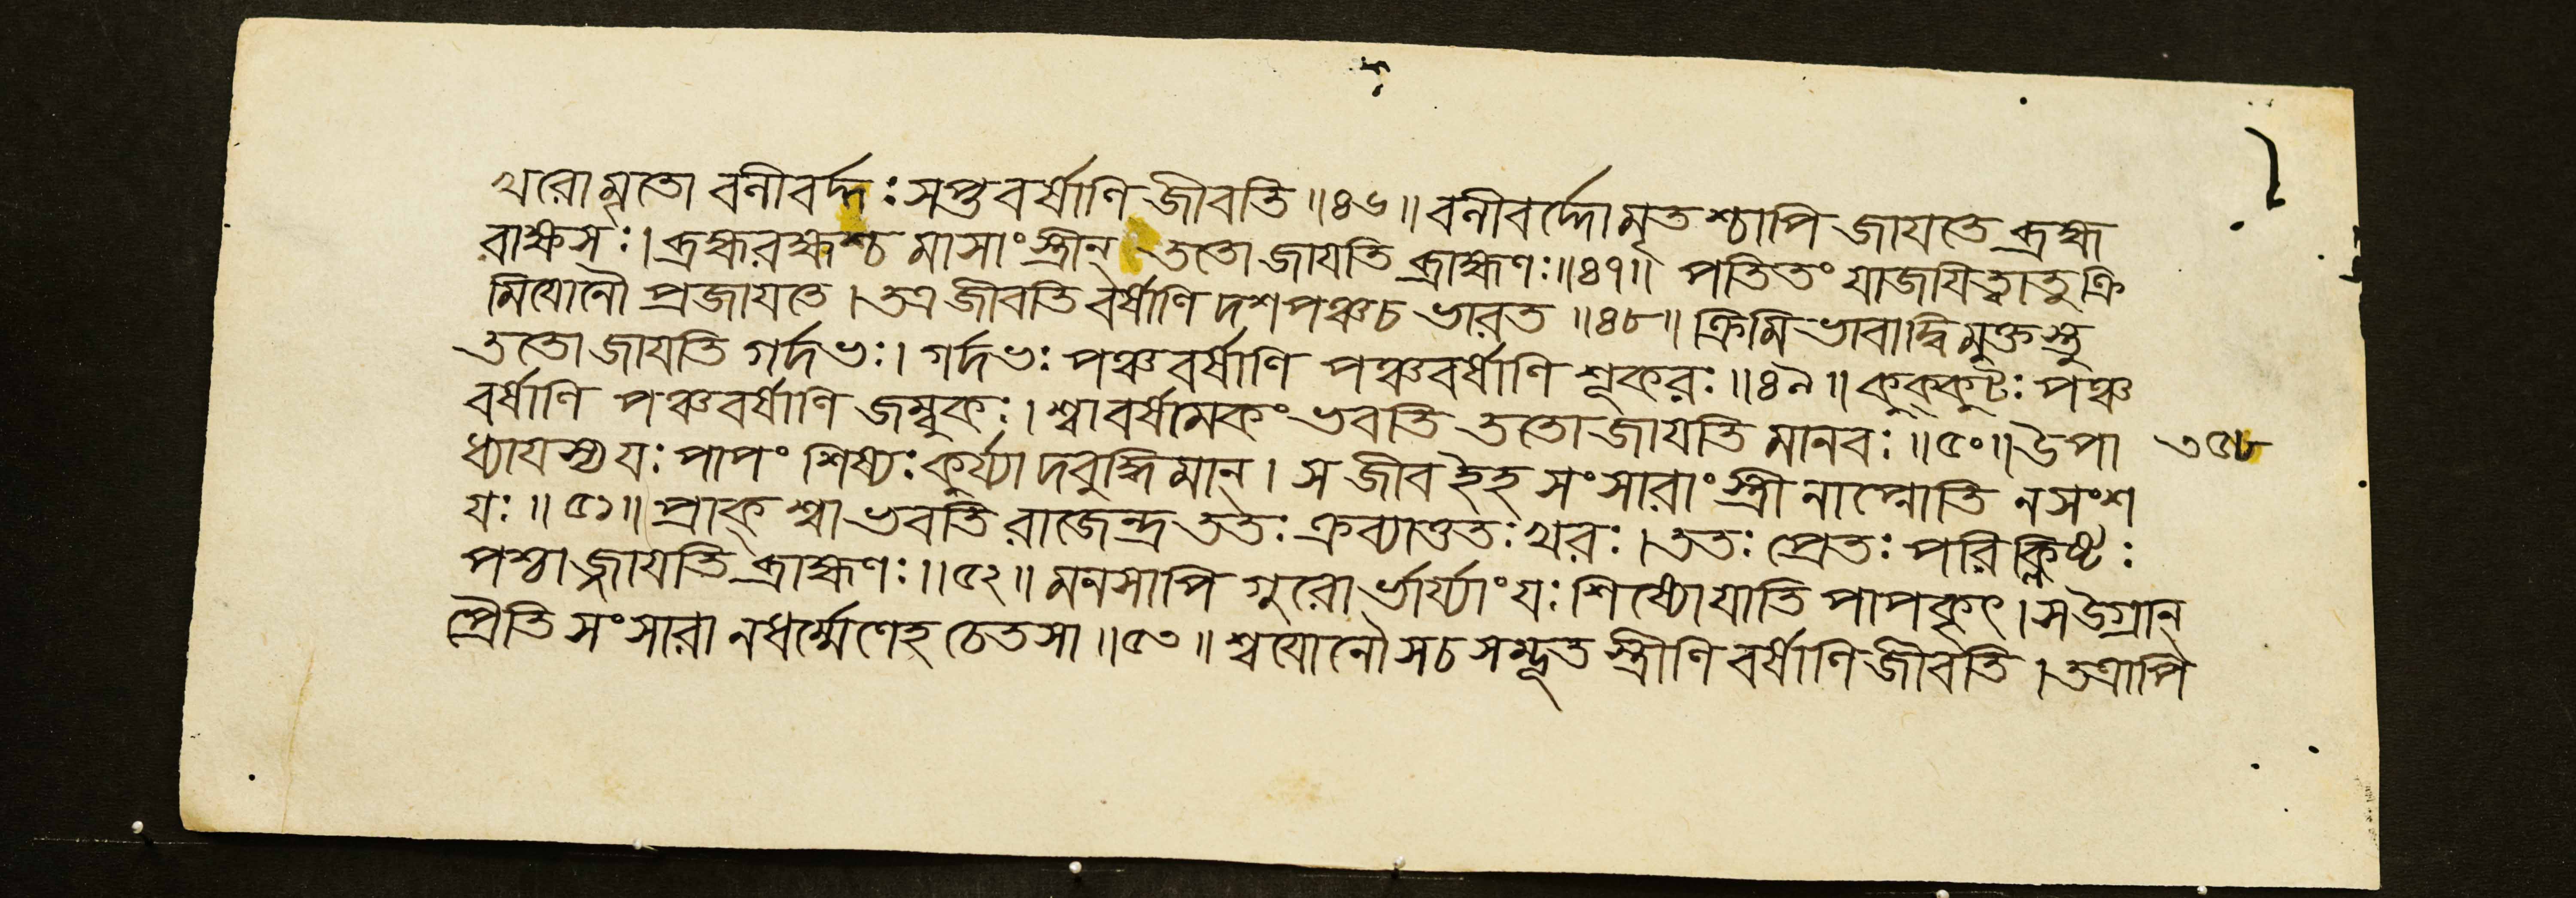 খরোমৃতো বলীবর্দ্দঃ সপ্তবর্ষাণি জীবতি ॥৪৬॥ বলীবর্দ্দোমৃতশ্চাপি জাযতে ব্রহ্ম
রাক্ষসঃ । ব্রহ্মরক্ষশ্চ মাসাংস্ত্রীন্ ততো জাযতি ব্রাহ্মণঃ ॥৪৭॥ পতিতং যাজযিত্বাতু ক্রি
মিযোনৌ প্রজাযতে । তত্র জীবতি বর্ষাণি দশপঞ্চচ ভারত ॥৪৮॥ ক্রিমিভাবাদ্বিমুক্তস্তু
ততো জাযতি গর্দ্দভঃ । গর্দ্দভঃ পঞ্চবর্ষাণি পঞ্চবর্ষাণি শূকরঃ ॥৪৯॥ কুক্কুটঃ পঞ্চ
বর্ষাণি পঞ্চবর্ষাণি জম্বুকঃ । শ্বাবর্ষমেকং ভবতি ততো জাযতি মানবঃ ॥৫০॥ উপা ৩৫৮
ধ্যাযস্যযঃ পাপং শিষ্যঃ কুর্য্যাদবুদ্ধিমান্ । স জীব ইহ সংসারাংস্ত্রীনাপ্নোতি নসংশ
যঃ ॥৫১॥ প্রাক্ শ্বা ভবতি রাজেন্দ্র ততঃ ক্রব্যাত্ততঃ খরঃ । ততঃ প্রেতঃ পরিক্লিষ্টঃ
পশ্চাজ্জাযতি ব্রাহ্মণঃ ॥৫২॥ মনসাপি গুরোর্ভার্য্যাং যঃ শিষ্যোযাতি পাপকৃৎ । সউগ্রান্
প্রৈতি সংসারানধর্ম্মেণেহ চেতসা ॥৫৩॥ শ্বযোনৌ সচ সম্ভূতস্ত্রীণি বর্ষাণি জীবতি । তত্রাপি